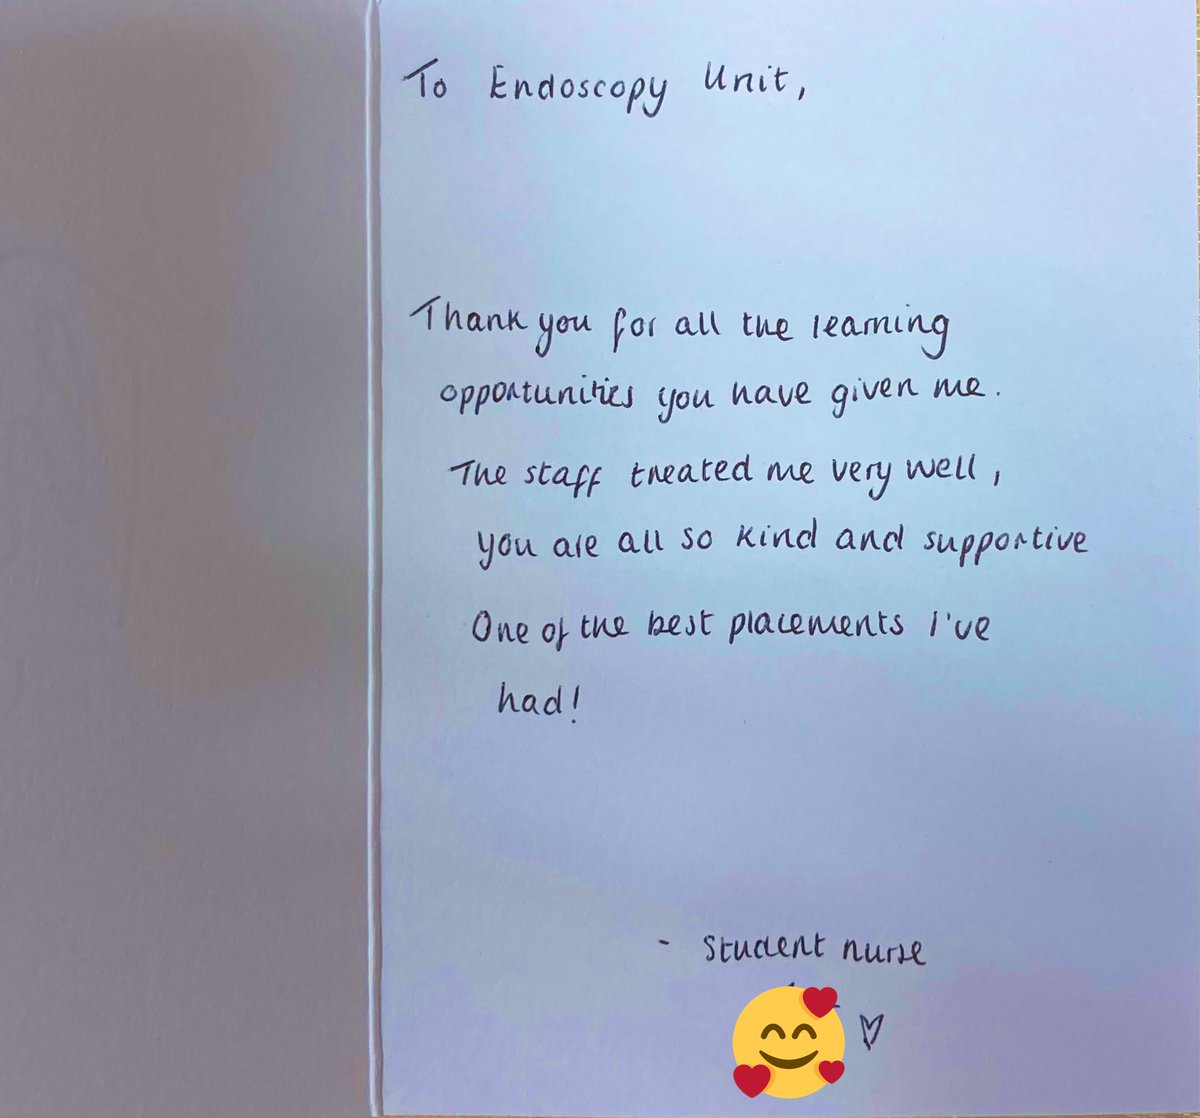 To Endoscopy Unit,
Thank you for all the learning
opportunities you have given me.
The staff treated me very well,
you are all so kind and supportive
One of the best placements I've
had!
- Student nurse